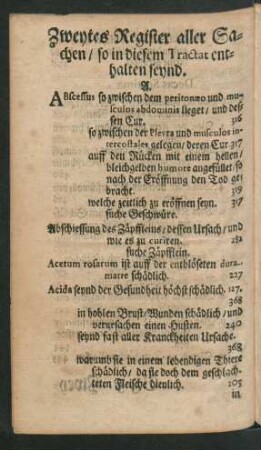 Zweytes Register aller Sa-
chen / so in diesem Tractat ent-
halten seynd.
A.
Abscessus so zwischen dem peritonæo und mu-
sculos abdominis lieget / und des-
sen Cur. 316
so zwischen der Pleura und musculos in-
tercostales gelegen / deren Cur 317
auff den Rücken mit einem hellen /
bleichgelden humore angefüllet so
nach der Eröffnung den Tod ge-
bracht. 319
welche zeitlich zu eröffnen seyn. 317
suche Geschwüre.
Abschiessung des Zäpffleins / dessen Ursach / und
wie es zu curiren. 282
suche Zäpfflein.
Acetum rosarum ist auff der entblöseten dura
matre schädlich. 227
Acida seynd der Gesundheit höchst schädlich. 127.
368
in hohlen Brust / Wunden schädlich / und
verursachen einen Husten. 240
seynd fast aller Kranckheiten Ursache.
368
warumb sie in einem lebendigen Thiere
schädlich / da sie doch dem geschlach-
teten Fleische dienlich. 105
in